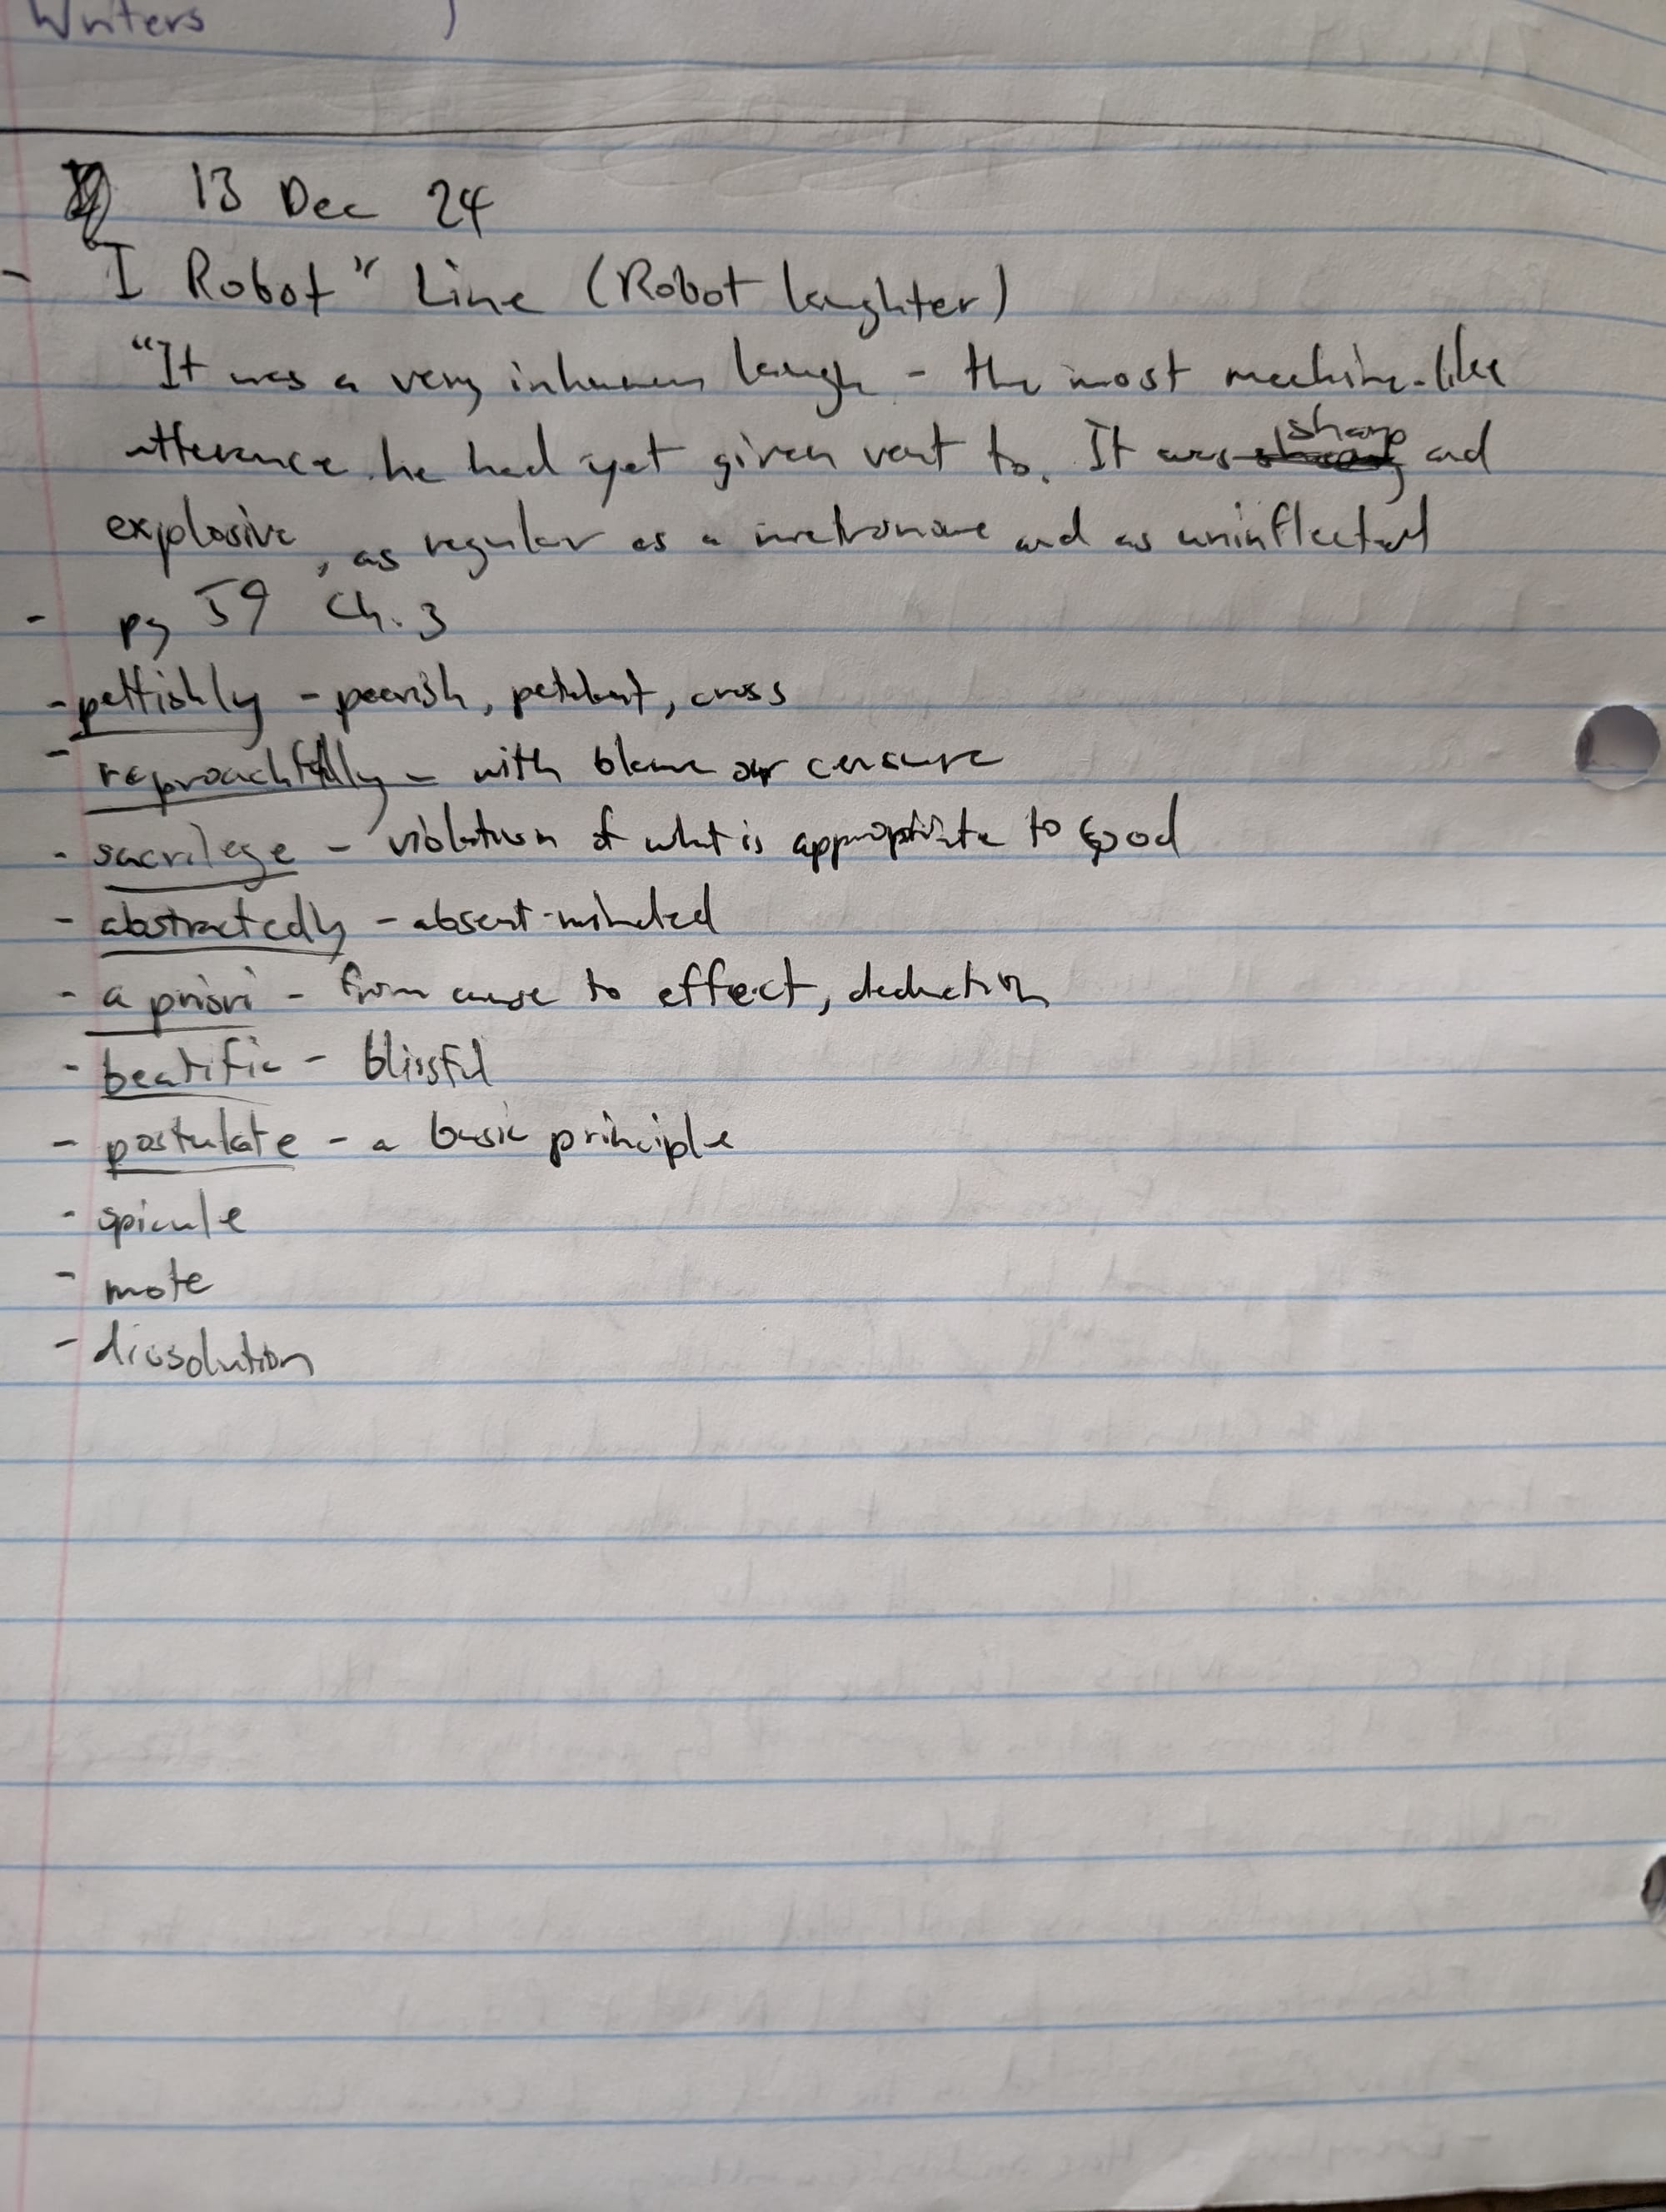 Writers )
13 Dec 24
- "I Robot" Line (Robot laughter)
"It was a very inhuman laugh - the most machine-like
utterance he had yet given vent to. It was sharp and
explosive, as regular as a metronome and as uninflected
- pg 59 Ch. 3
- pettishly - peevish, petulant, cross
- reproachfully - with blame or censure
- sacrilege - violation of what is appropriate to good
- abstractedly - absent-minded
- a priori - from cause to effect, deduction
- beatific - blissful
- postulate - a basic principle
- spicule
- mote
- dissolution